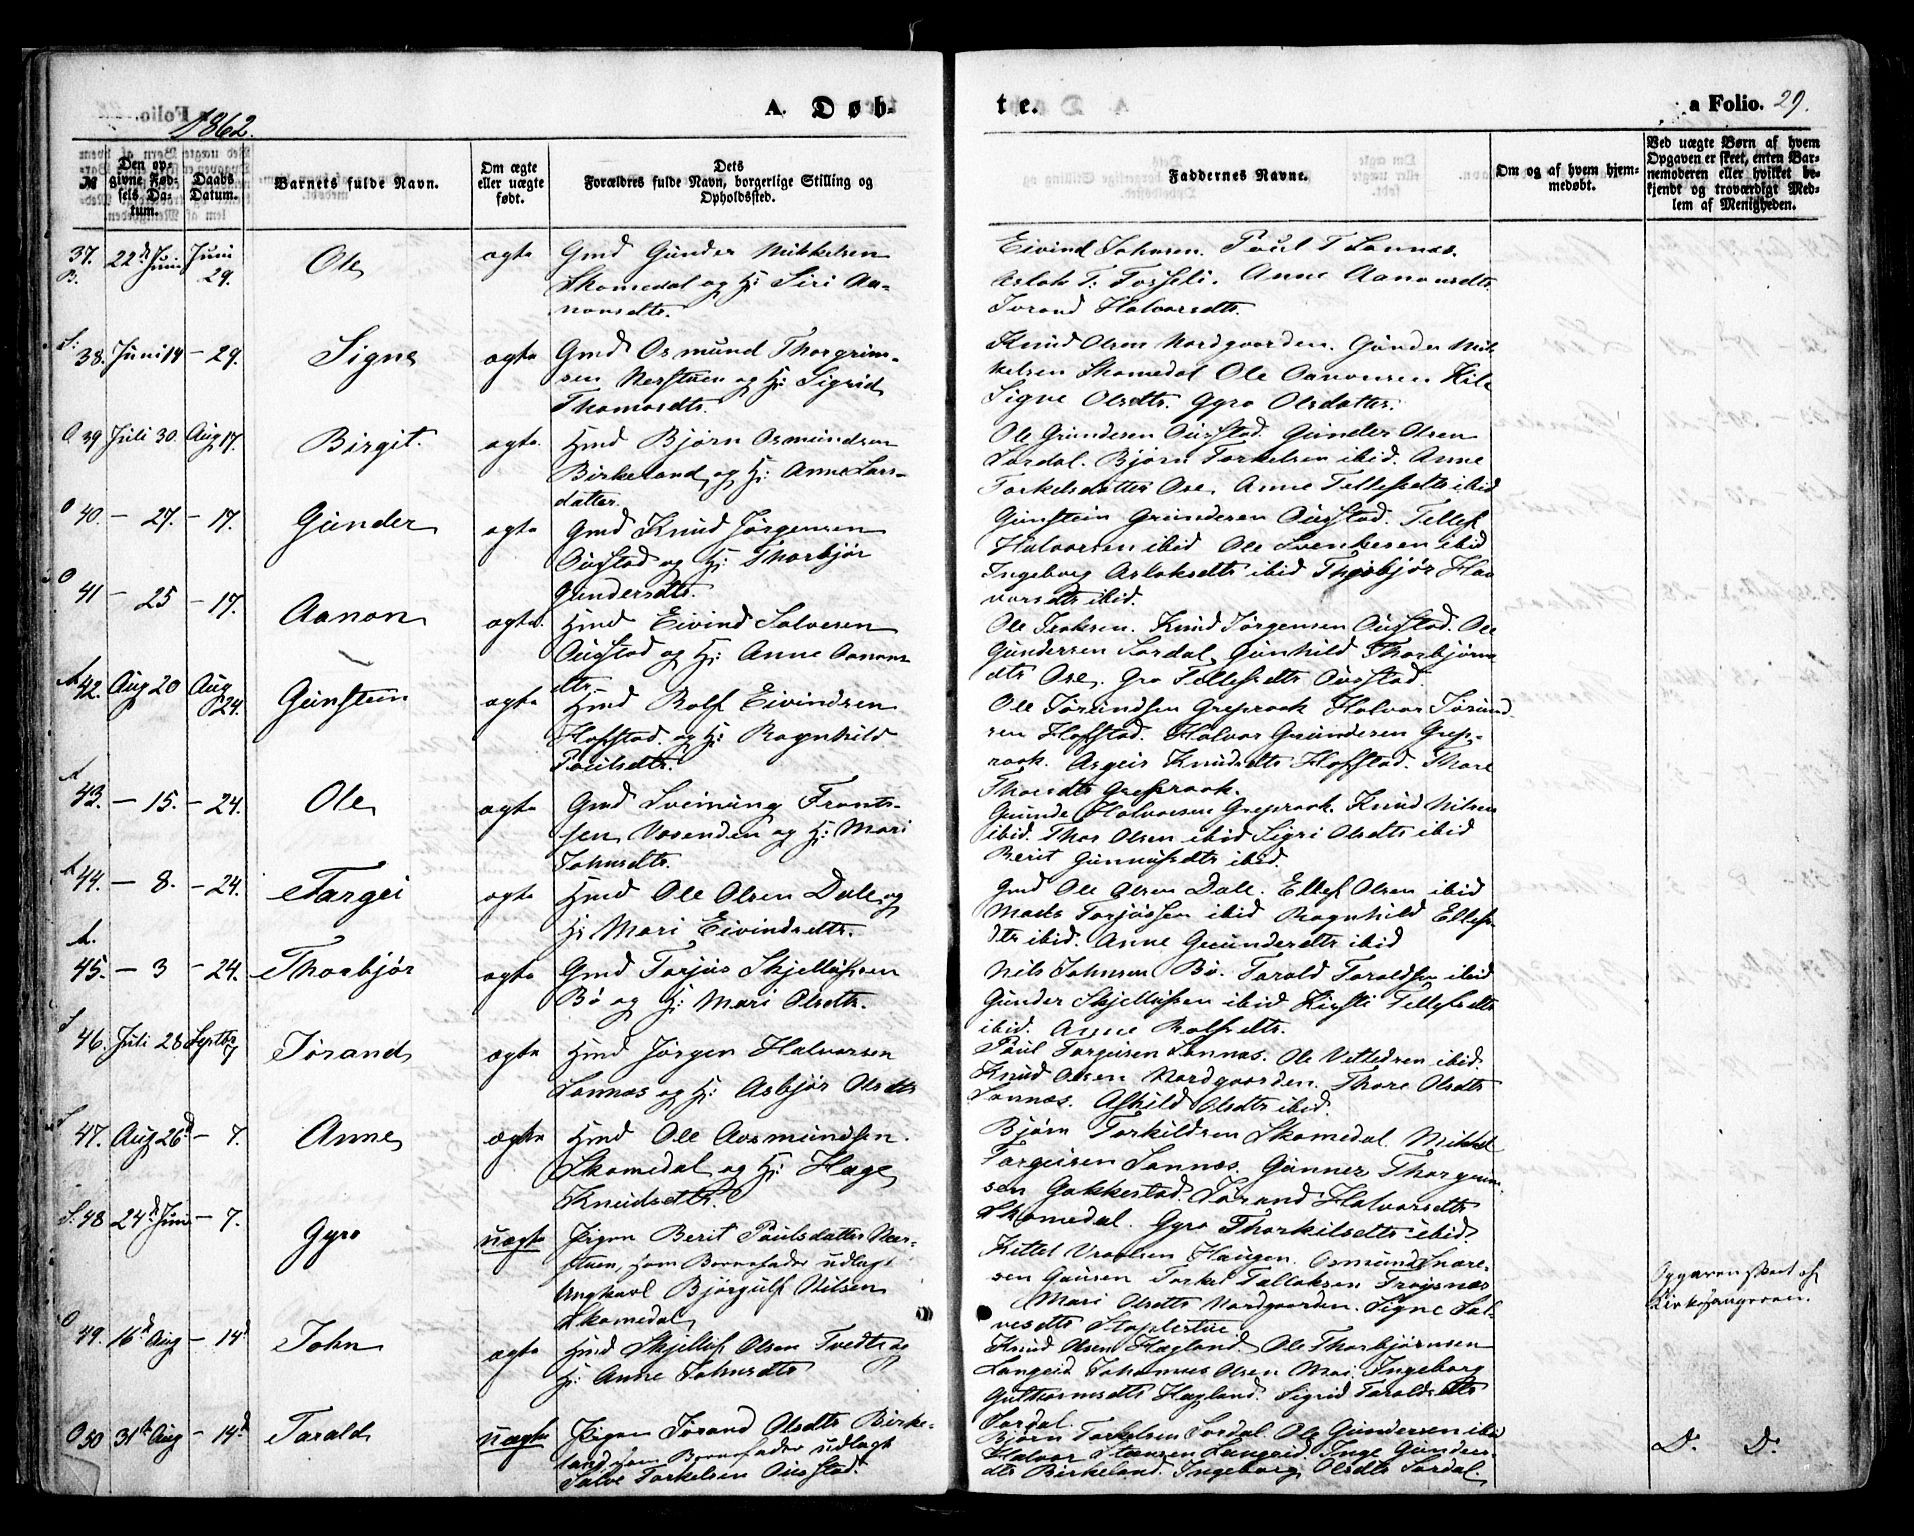 1862.
A. Døb-
te.
a Folio. 29.
№
Den op-
givne Fød-
sels Da-
tum.
Daabs
Datum.
Barnets fulde Navn.
Om ægte
eller uægte
født.
Dets
Forældres fulde Navn, borgerlige Stilling og
Opholdssted.
Faddernes Navne.
Om og af hvem hjem-
medøbt.
Ved uægte Børn af hvem
Opgaven er skeet, enten Bar-
nemoderen eller hvilket be-
kjendt og troværdigt Med-
lem af Menigheden.
37. B. 22d Juni Juni 29. Ole ægte
Gmd Gunder Mikkelsen
Skomedal og H: Siri Aa-
nonsdtr.
Eivind Johnsen. Poul T. Lonnas.
Aslak T. Fosseli. Anne Aanonsdtr.
Torand Halvorsdtr.
S: 38. Juni 14 - 29. Signe ægte
Gmd Osmund Thorgrim-
sen Nerstuen og H: Sigrid
Thomasdtr.
Knud Olsen Nordgaarden. Gunder Mik-
kelsen Skomedal Ole Aanonsen Hile
Signe Olsdtr. Gyro Olsdatter.
O 39 Juli 30. Aug 17. Birgit. ægte.
Hmd Bjørn Osmundsen
Birkeland og H: Anne Lars-
datter.
Ole Gundersen Ousstad. Gunder Olsen
Sordal. Bjørn Torkelsen ibid. Anne
Torkelsdatter Ose. Anne Tellefsdtr ibid
O 40. - 27. - 17. Gunder ægte
Gmd Knud Jørgensen
Ousstad og H: Thorbjør
Gundersdtr.
Gunstein Gundersen Ousstad. Tellef
Halvorsen ibid Ole Svenkesen ibid
Ingeborg Aslaksdtr ibid Thorbjør Hal
vorsdtr ibid.
O 41 - 25 - 17. Aanon ægte.
Hmd Eivind Salvesen
Ousstad og H: Anne Aanons
dtr.
Ole Knud Jørgensen Ousstad. Ole
Gundersen Sordal, Gunhild Thorbjørns
dtr Ose. Gro Tellefsdtr Ousstad.
A 42. Aug 20 Aug 24. Gunstein ægte
Hmd Rolf Eivindsen
Hofstad og H: Ragnhild
Poulsdtr.
Ole Torundsen Greprook Halvor Torund-
sen Hofstad. Halvor Gundersen Grep-
rook. Asgeir Knudsdtr Hofstad. Thore
Thorsdtr Greprook.
A 43. - 15. - 24. Ole ægte
Gmd Sveinung Fronts-
sen Vasenden og H: Mari
Johnsdtr.
Gunde Halvorsen Greprook. Knud Nilsen
ibid. Thor Olsen ibid Sigri Olsdtr ibid
Berit Gunnufsdtr ibid.
A 44. - 8. - 24. Targei ægte
Hmd Ole Olsen Dale og
H: Mari Eivindsdtr.
Gmd Ole Olsen Dale. Ellef Olsen ibid
Mads Torjussen ibid Ragnhild Ellefs-
dtr ibid. Anne Gundersdtr ibid
A. 45. - 3 - 24. Thorbjør ægte
Gmd Torjus Skjellufsen
Bø og H: Mari Olsdtr.
Nils Johnsen Bø. Torald Taraldsen ibid
Gunder Skjellufsen ibid Kirsti Tellefsdtr
ibid. Anne Rolfsdtr.
S 46. Juli 28 Septbr 7 Torand ægte
Hmd Jørgen Halvorsen
Lonnas og H: Asbjør Olsdtr
Poul Torgeisen Lonnas. Ole Vettersen ibid.
Knud Olsen Nordgaarden. Thore Olsdtr
Lonnas. Askild Olsdtr ibid.
S 47. Aug 26d - 7. Anne ægte
Hmd Ole Aosmundsen.
Skomedal og H: Hæge
Knudsdtr.
Bjørn Torkildsen Skomedal. Mikkel
Torgeisen Lonnas. Gunner Thorgrim-
sen Gakkestad. Torand Halvorsdtr
Skomedal. Gyro Thorkilsdtr ibid.
S: 48 24d Juni - 7. Gyro uægte
Pigen Berit Poulsdatter Ner-
stuen, som Barnefader udlagt
Ungkarl Bjørgulf Nilsen
Skomedal
Kittel Vraalsen Haugen. Osmund Snare-
sen Tarkel Tallaksen Froysnæs
Mari Olsdtr Nordgaarden. Signe Sal-
vesdtr
Opgaven skeet af
Kirkesangeren.
O 49. 16d Aug - 14d John ægte
Hmd Skjelluf Olsen Tvedt og
H: Anne Johnsdtr
Knud Olsen Hægland. Ole Thorbjørnsen
Langeid Johannes Olsen Moi Ingeborg
Guthormsdtr Hægland. Sigrid Taraldsdtr
Sordal.
O 50 31te Aug - 14d Tarald uægte
Pigen Torand Olsdtr Birke-
land som Barnefader udlagt
Salve Torkelsen Ousstad.
Bjørn Torkelsen Sordal Ole Gundersen ibid
Halvor Langeid. Inge Gunders-
dtr Birkeland. Ingeborg Olsdtr Sordal.
D. D.